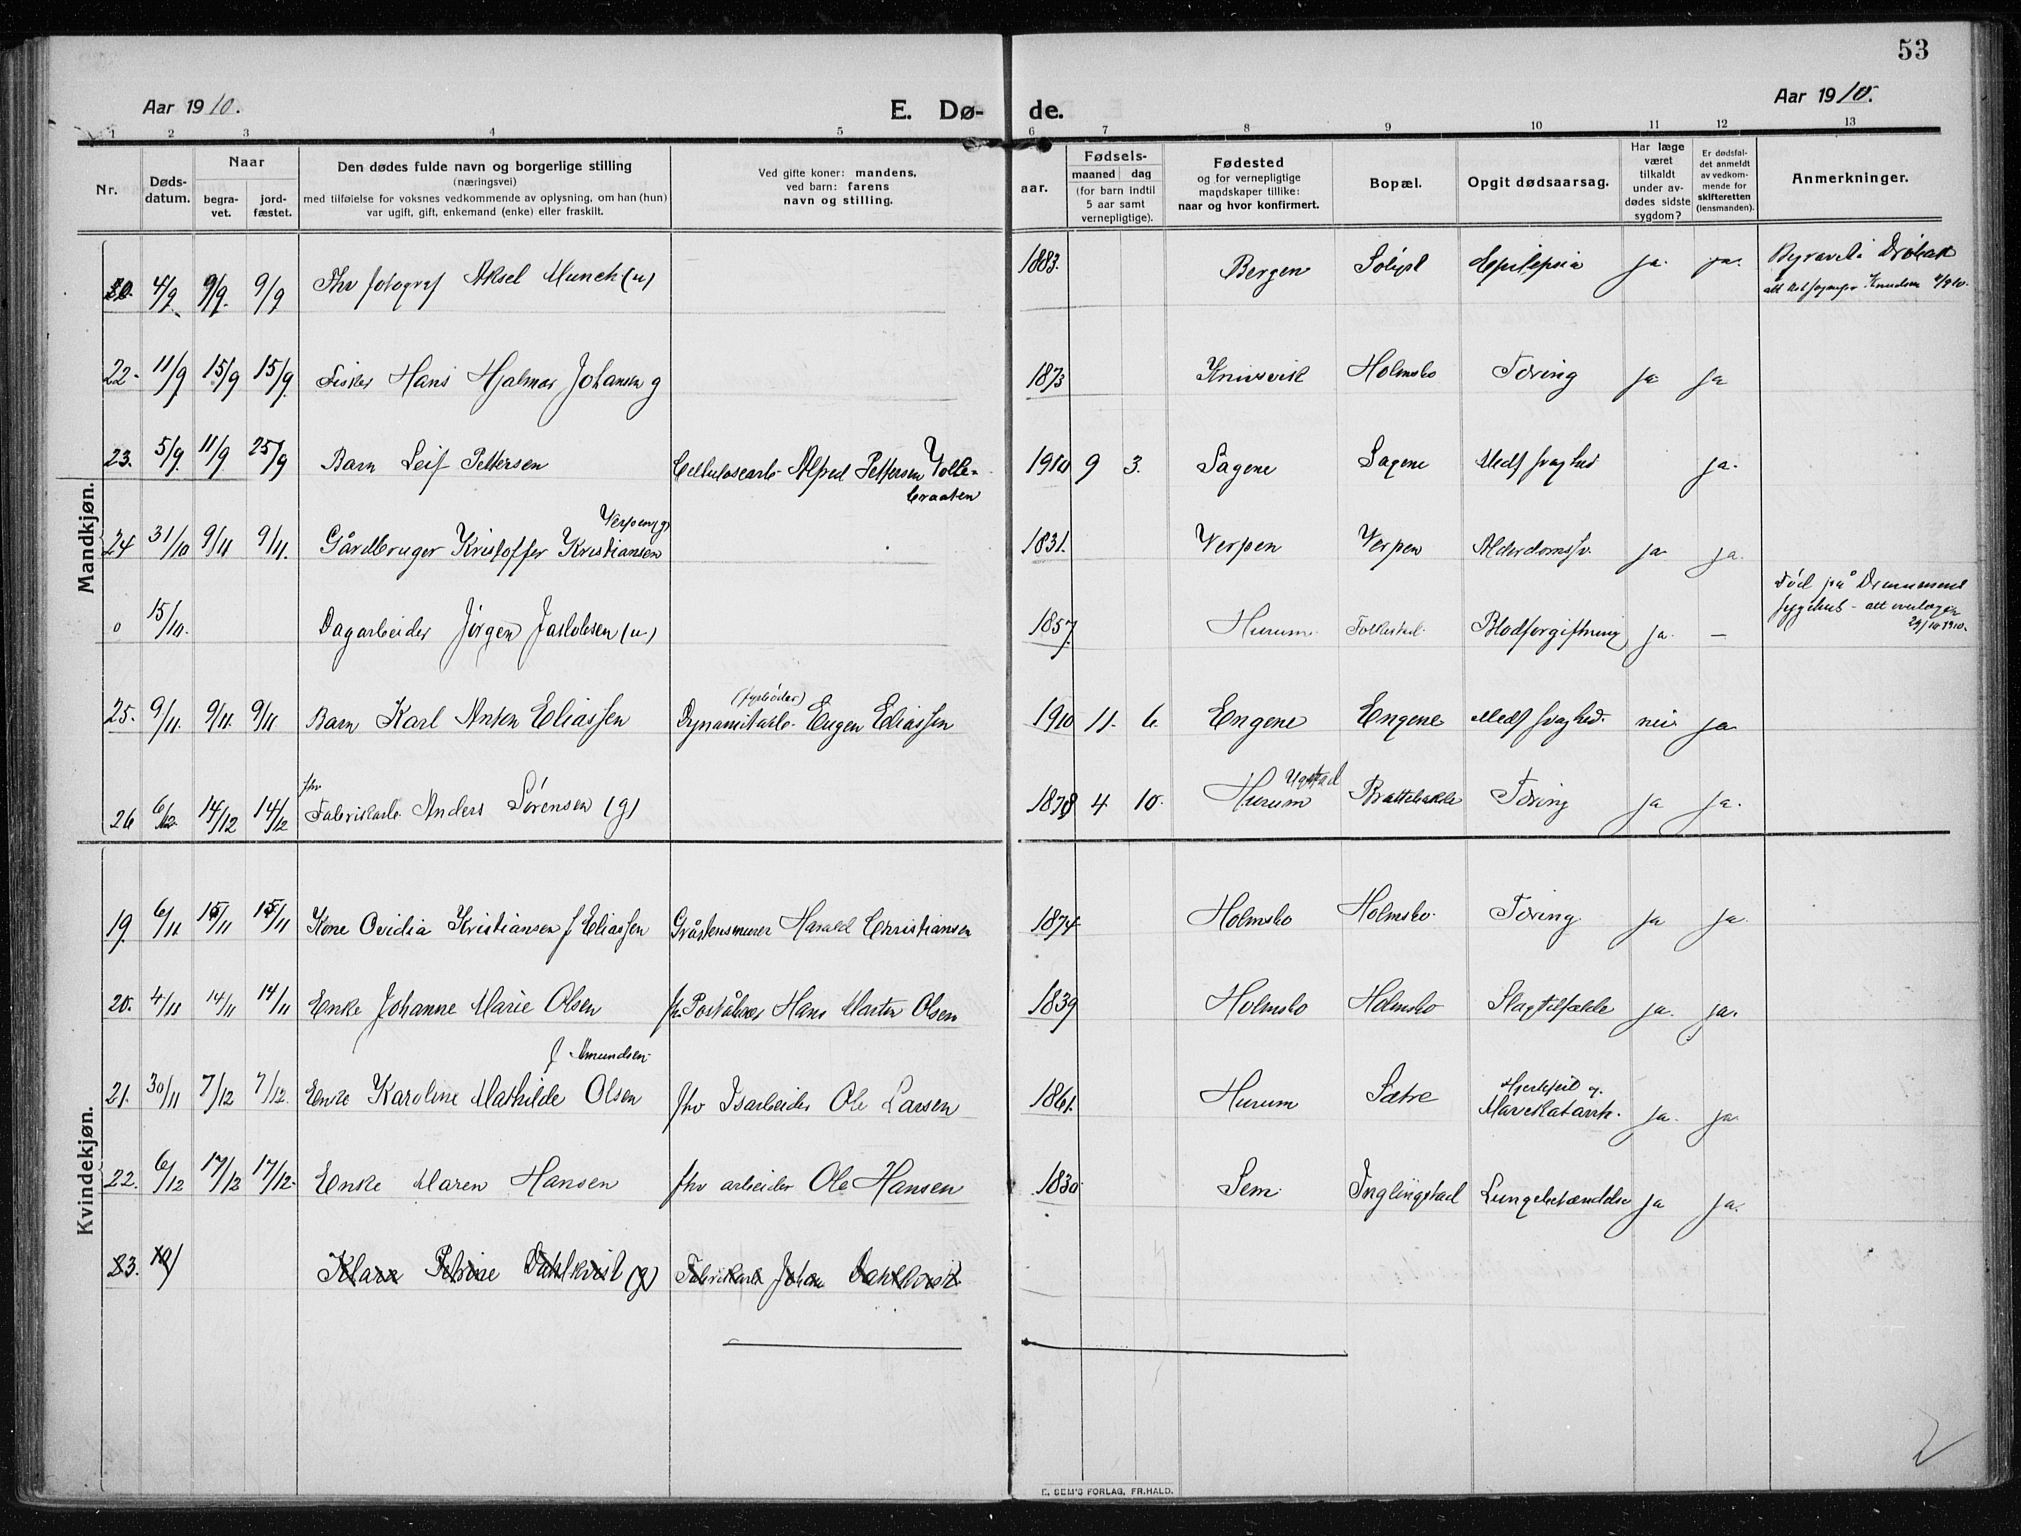 53
Aar 1910. E. Dø- de. Aar 1910.
1 2 3 4 5 6 7 8 9 10 11 12 13
Nr.
Døds-
datum.
Naar
begra-
vet.
jord-
fæstet.
Den dødes fulde navn og borgerlige stilling
(næringsvei)
med tilføielse for voksnes vedkommende av oplysning, om han (hun)
var ugift, gift, enkemand (enke) eller fraskilt.
Ved gifte koner: mandens,
ved barn: farens
navn og stilling.
Fødsels-
aar.
maaned dag
(for barn indtil
5 aar samt
vernepligtige).
Fødested
og for vernepligtige
mandskaper tillike:
naar og hvor konfirmert.
Bopæl.
Opgit dødsaarsag.
Har læge
været
tilkaldt
under av-
dødes sidste
sygdom?
Er dødsfal-
det anmeldt
av vedkom-
mende for
skifteretten
(lensmanden).
Anmerkninger.
Mandkjøn.
4/9 9/9 9/9 Fhv fotograf Aksel Munch (u) 1883. Bergen Epilepsia ja. ja.
22. 11/9 15/9 15/9 Fisker Hans Hjalmar Johansen g 1873 Knivsvik Holmsbo Tæring ja ja
23. 5/9 11/9 25/9 Barn Leif Pettersen Cellulosearb. Alfred Pettersen Tolle-
braaten
1910 9 3. Sagene Sagene Medf svaghed ja.
Verpen (g)
24 31/10 9/11 9/11. Gårdbruger Kristoffer Kristiansen 1831. Verpen Verpen Alderdomssv. ja ja.
o 15/10. Dagarbeider Jørgen Jakobsen (u) 1857. Hurum Tollestad. Blodforgiftning ja. –
Død på Drammens
sygehus - att overlægen
29/10 1910.
25. 9/11 9/11. 9/11 Barn Karl Anton Eliassen
(fyrbøder)
Dynamitarb. Eugen Eliassen 1910 11. 6. Engene Engene Medf svaghed. nei ja
fhv
26 6/12 14/12 14/12 Fabrikarb. Anders Sørensen (g) 1878 4 10. Hurum Brattebakke Tæring ja ja.
Kvindekjøn.
19. 6/11 15/11 15/11 Kone Ovidia Kristiansen f Eliassen Gråstensmurer Harald Christiansen 1874 Holmsbo Holmsbo. Tæring ja ja.
20. 4/11 14/11 14/11 Enke Johanne Marie Olsen Poståbner Hans Martin Olsen 1839 Holmsbo Holmsbo Slagtilfælde ja. ja.
f Amundsen.
21. 30/11 7/12 7/12. Enke Karoline Mathilde Olsen fhv Isarbeider Ole Larsen 1861. Hurum Sætre Hjertefeil og
Mavekatarrh. ja. ja.
22. 6/12 17/12 17/12. Enke Maren Hansen fhv arbeider Ole Hansen 1830 Sem Inglingstad Lungebetændelse ja ja.
23. Klara Petrine Dahlkvist (g) Fabrikarb Johan Dahlkvist
E. SEM'S FORLAG, FR.HALD.